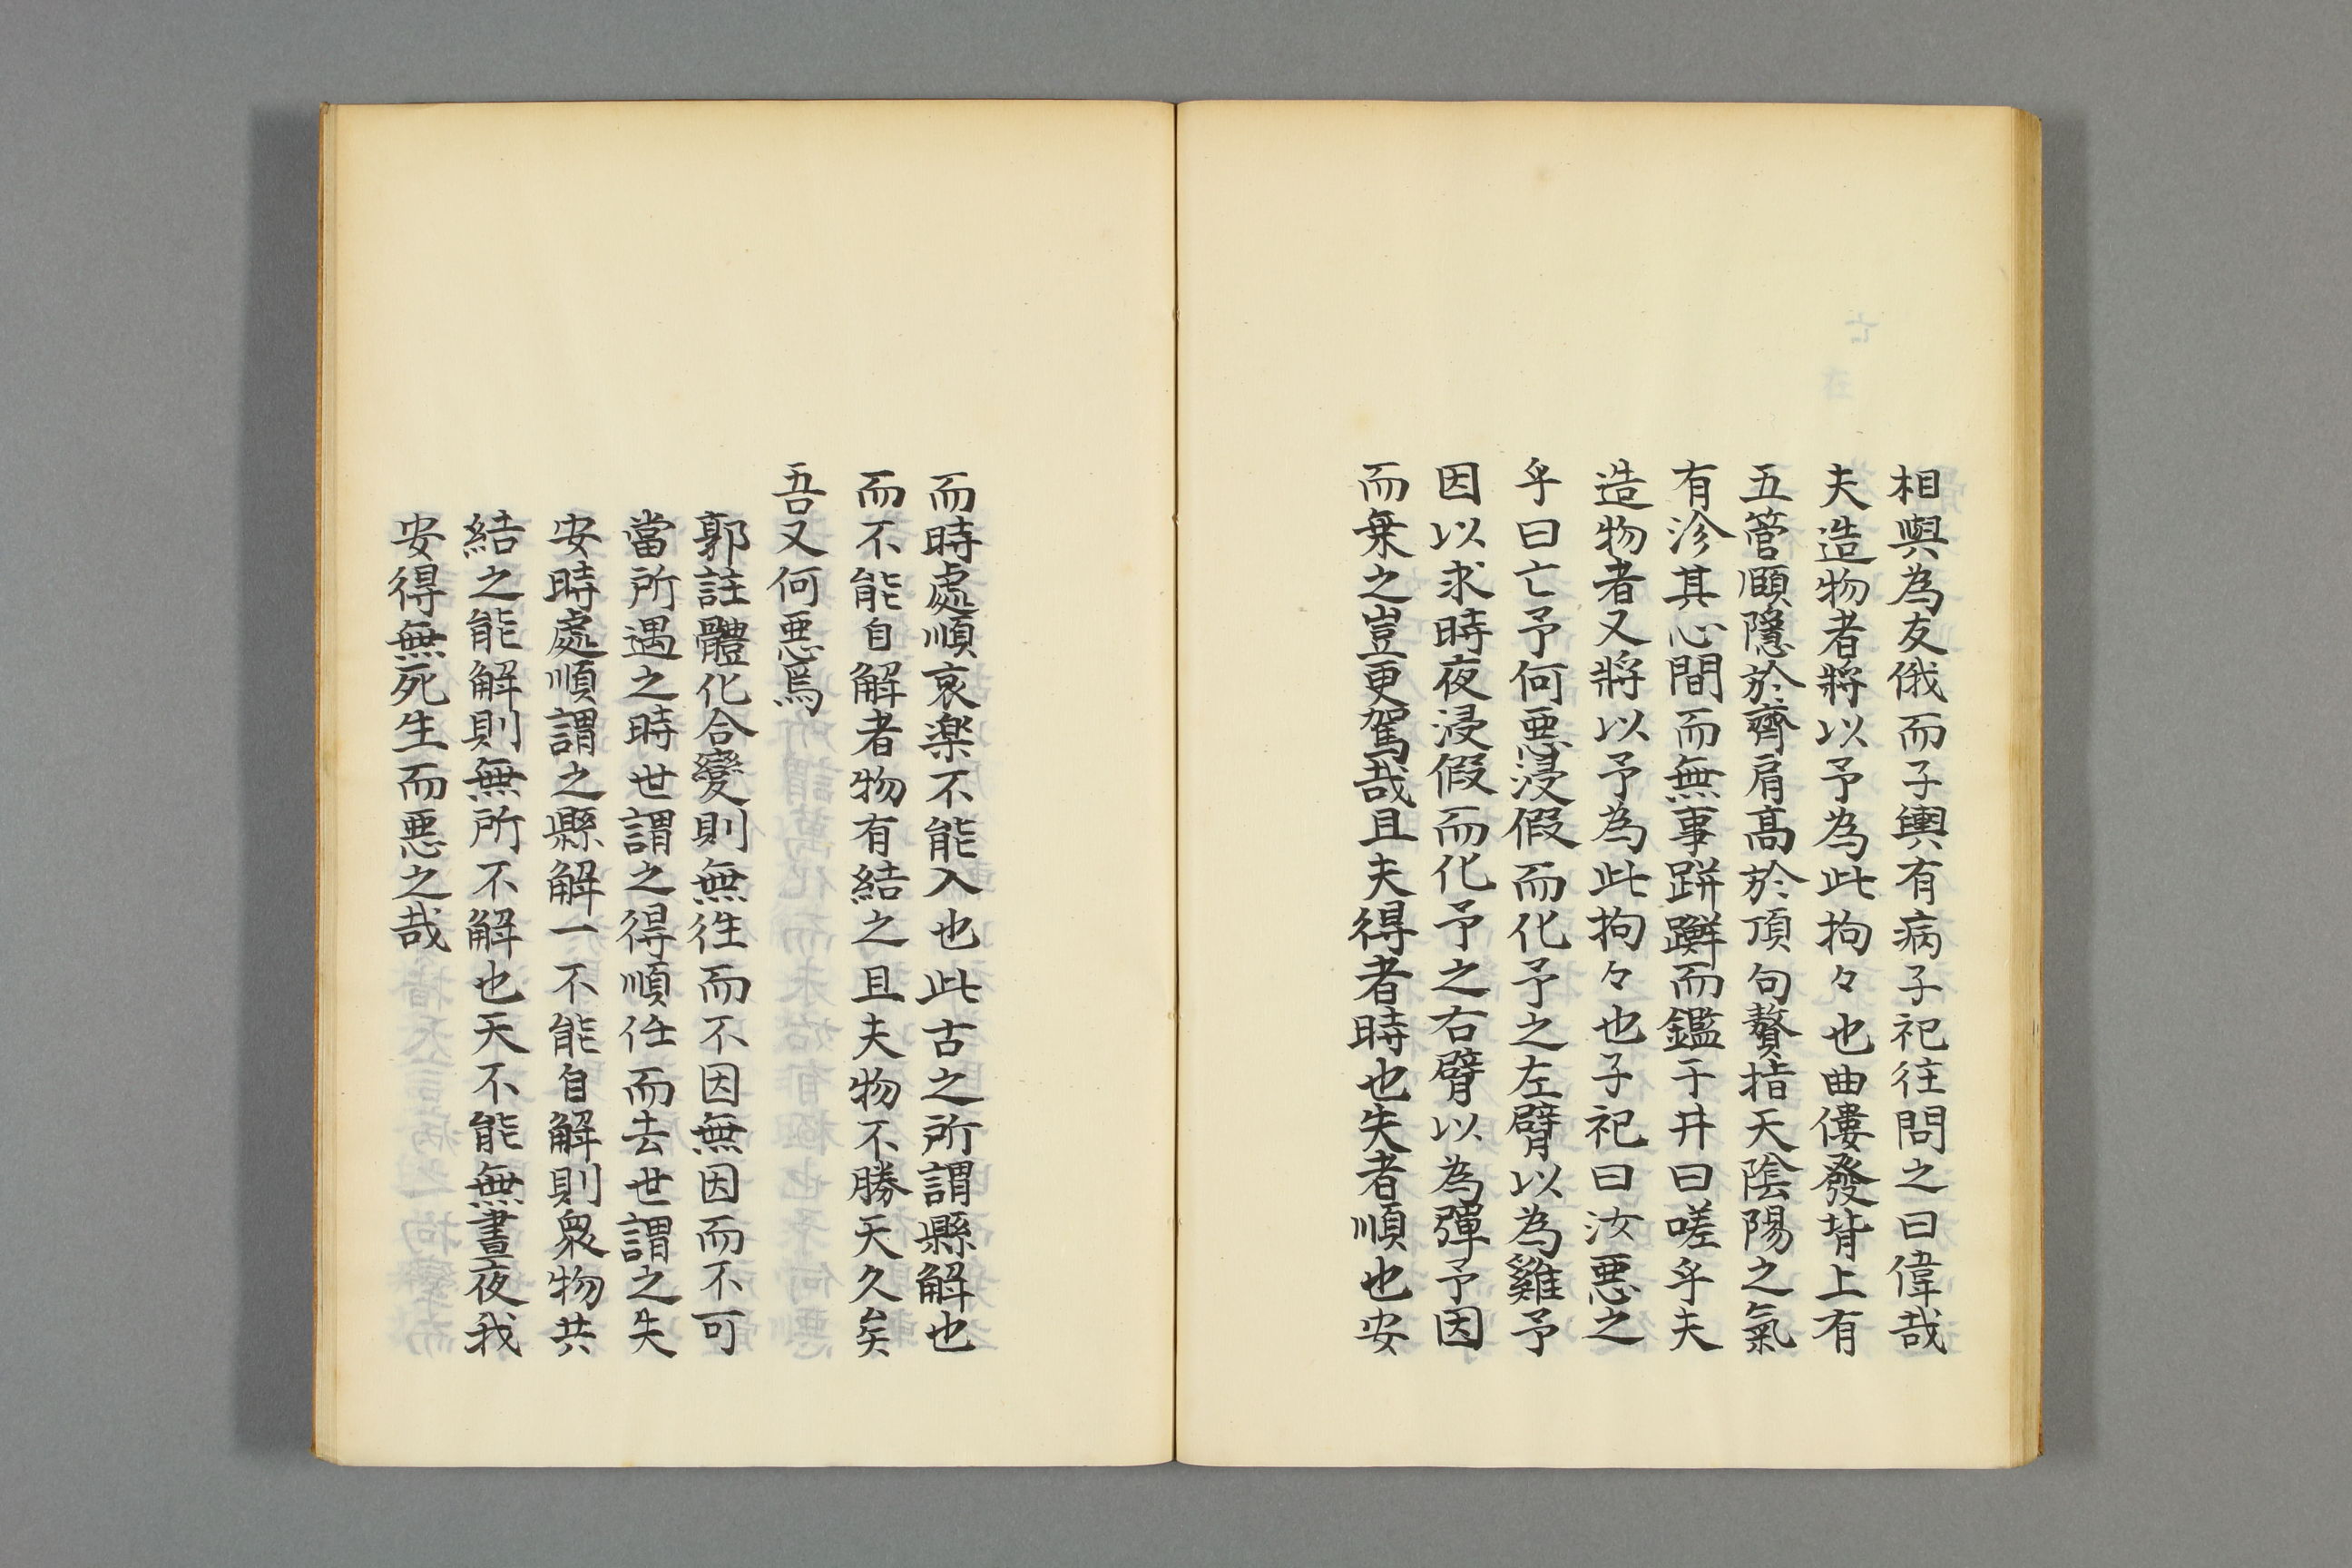 相與為友俄而子輿有病子祀往問之曰偉哉
夫造物者將以予為此拘々也曲僂發背上有
五管頤隱於齊肩高於頂句贅指天陰陽之氣
有沴其心間而無事跰𨇤而鑑于井曰嗟乎夫
造物者又將以予為此拘々也子祀曰汝悪之
乎曰亡予何悪浸假而化予之左臂以為雞予
因以求時夜浸假而化予之右臂以為彈予因
而乗之豈更駕哉且夫得者時也失者順也安
而時處順哀楽不能入也此古之所謂縣解也
而不能自解者物有結之且夫物不勝天久矣
吾又何悪焉
郭註體化合變則無徃而不因無因而不可
當所遇之時世謂之得順任而去世謂之失
安時處順謂之縣解一不能自解則衆物共
結之能解則無所不解也天不能無晝夜我
安得無死生而悪之哉